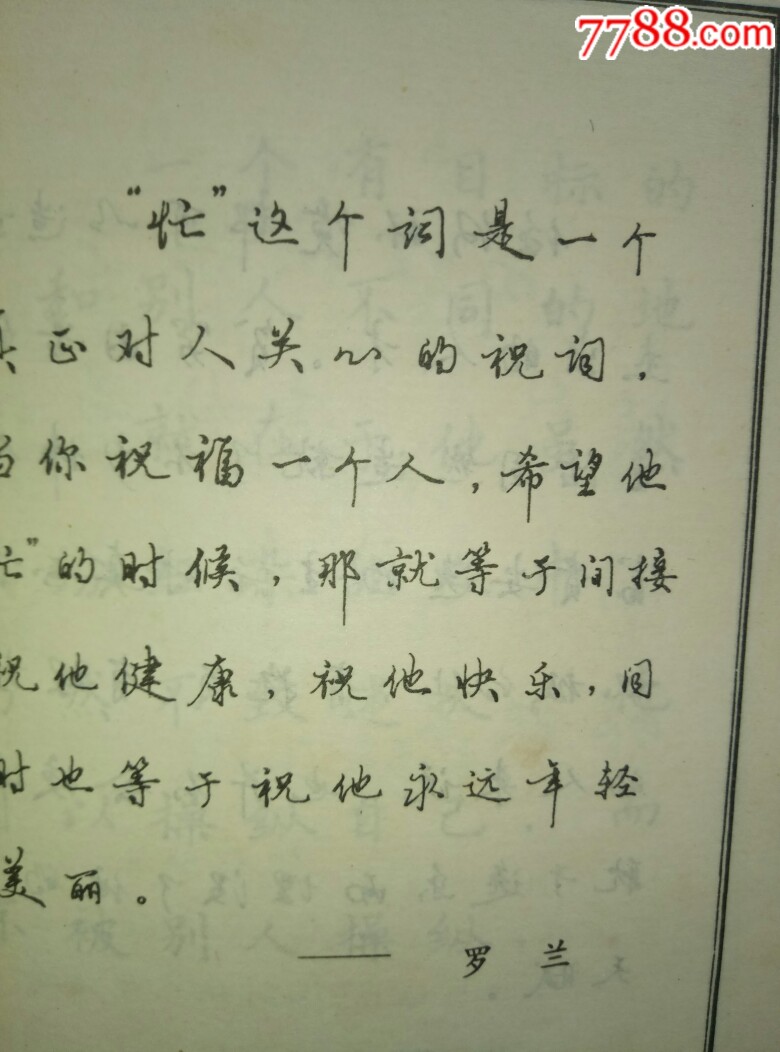 7788.com
“忙”这个词是一个
真正对人关心的祝词，
当你祝福一个人，希望他
忙”的时候，那就等于间接
祝他健康，祝他快乐，同
时也等于祝他永远年轻
美丽。
——罗兰